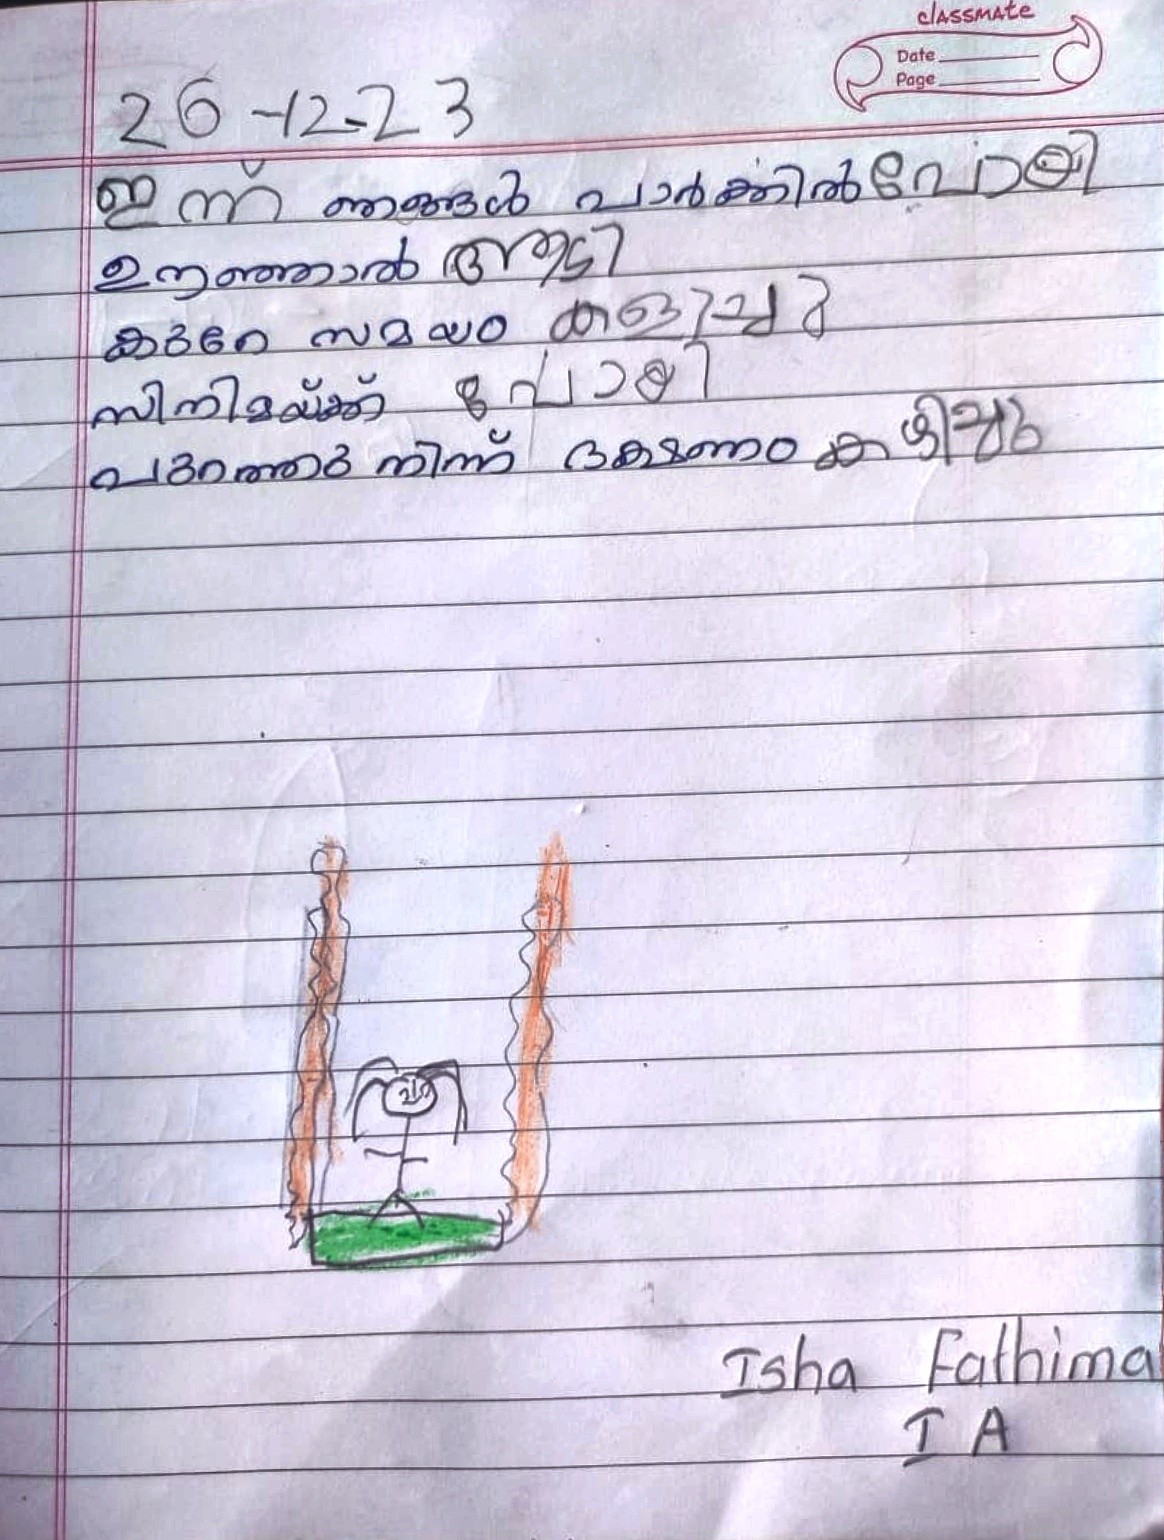 classmate
Date
Page
26-12-23
ഇന്ന് ഞങ്ങൾ പാർക്കിൽ പോയി
ഊഞ്ഞാൽ ആടി
കുറേ സമയം കളിച്ചു
സിനിമയ്ക്ക് പോയി
പുറത്തു നിന്ന് ഭക്ഷണം കഴിച്ചു
Isha Fathima
I A